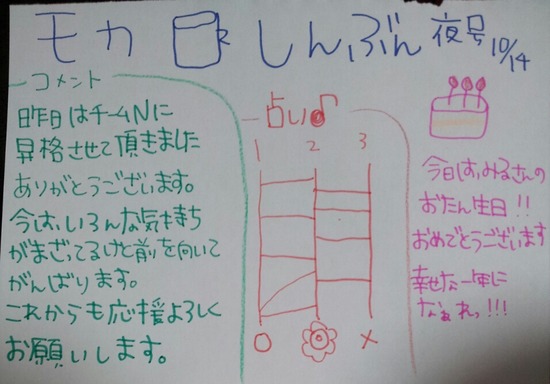 モカ しんぶん 夜号 10/14
コメント
昨日はチームNに
昇格させて頂きました
ありがとうございます。
今は、いろんな気持ち
がまざってるけど前を向いて
がんばります。
これからも応援よろしく
お願いします。
占い
1 2 3
今日は、みるさんの
おたん生日!!
おめでとうございます
幸せな一年に
なぁれっ!!!